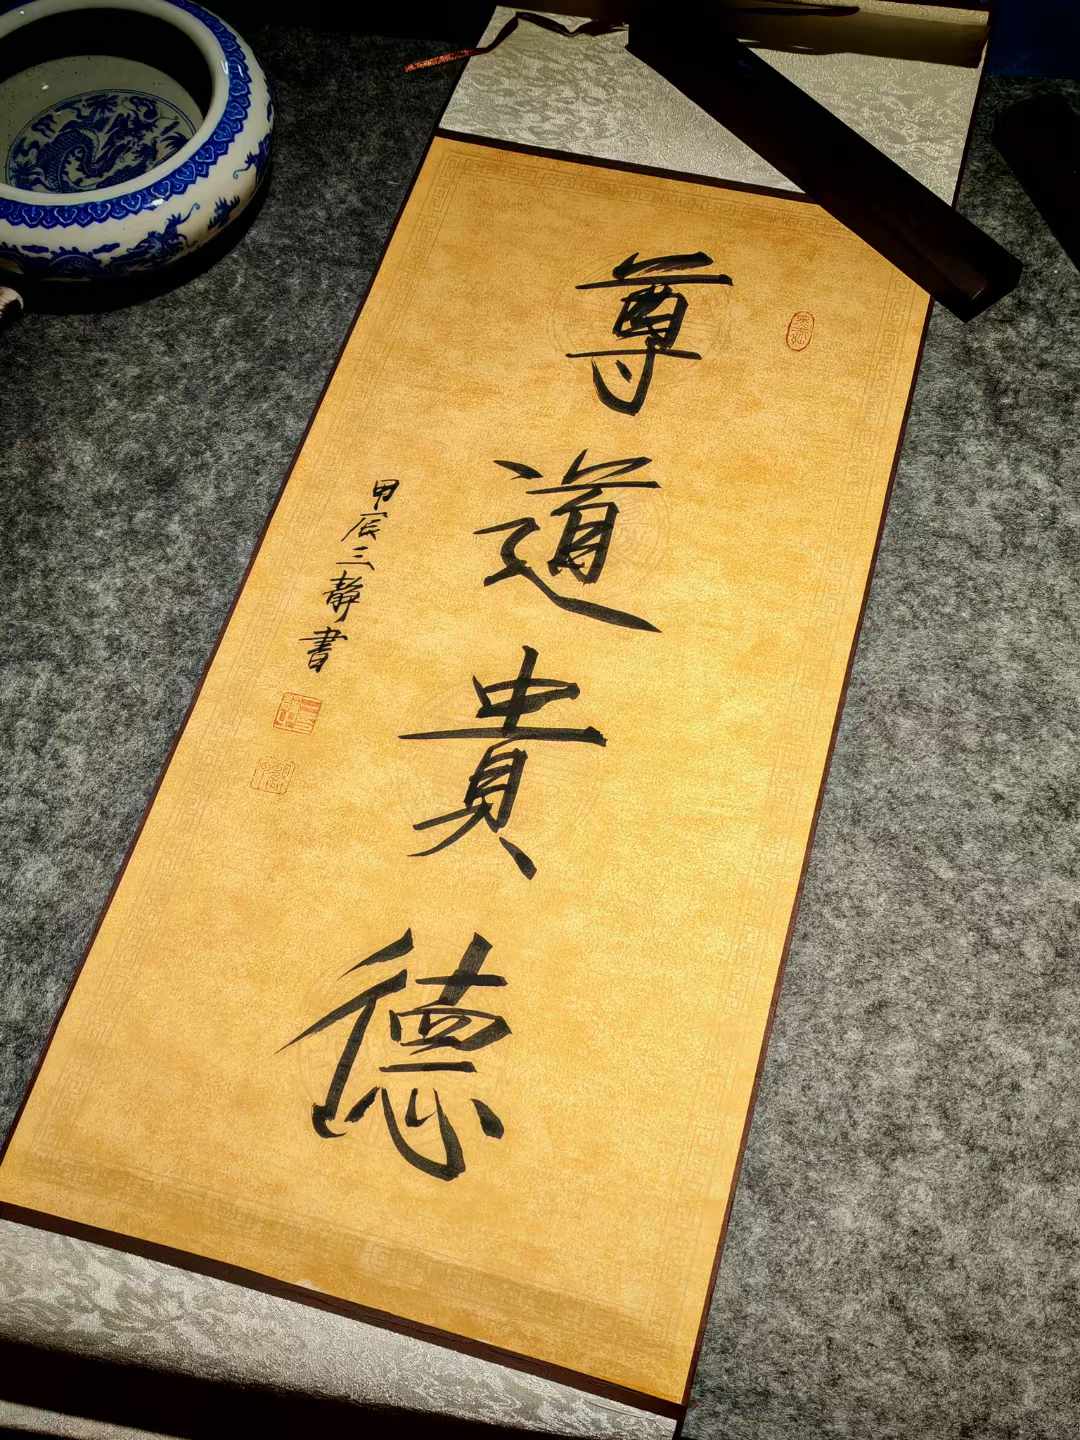 尊道貴德
甲辰三靜書